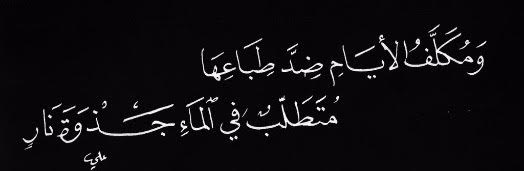 وَمُكَلَّفُ الأَيَّامِ ضِدَّ طِبَاعِهَا
مُتَطَلِّبٌ فِي المَاءِ جَذْوَةَ نَارِ
علي